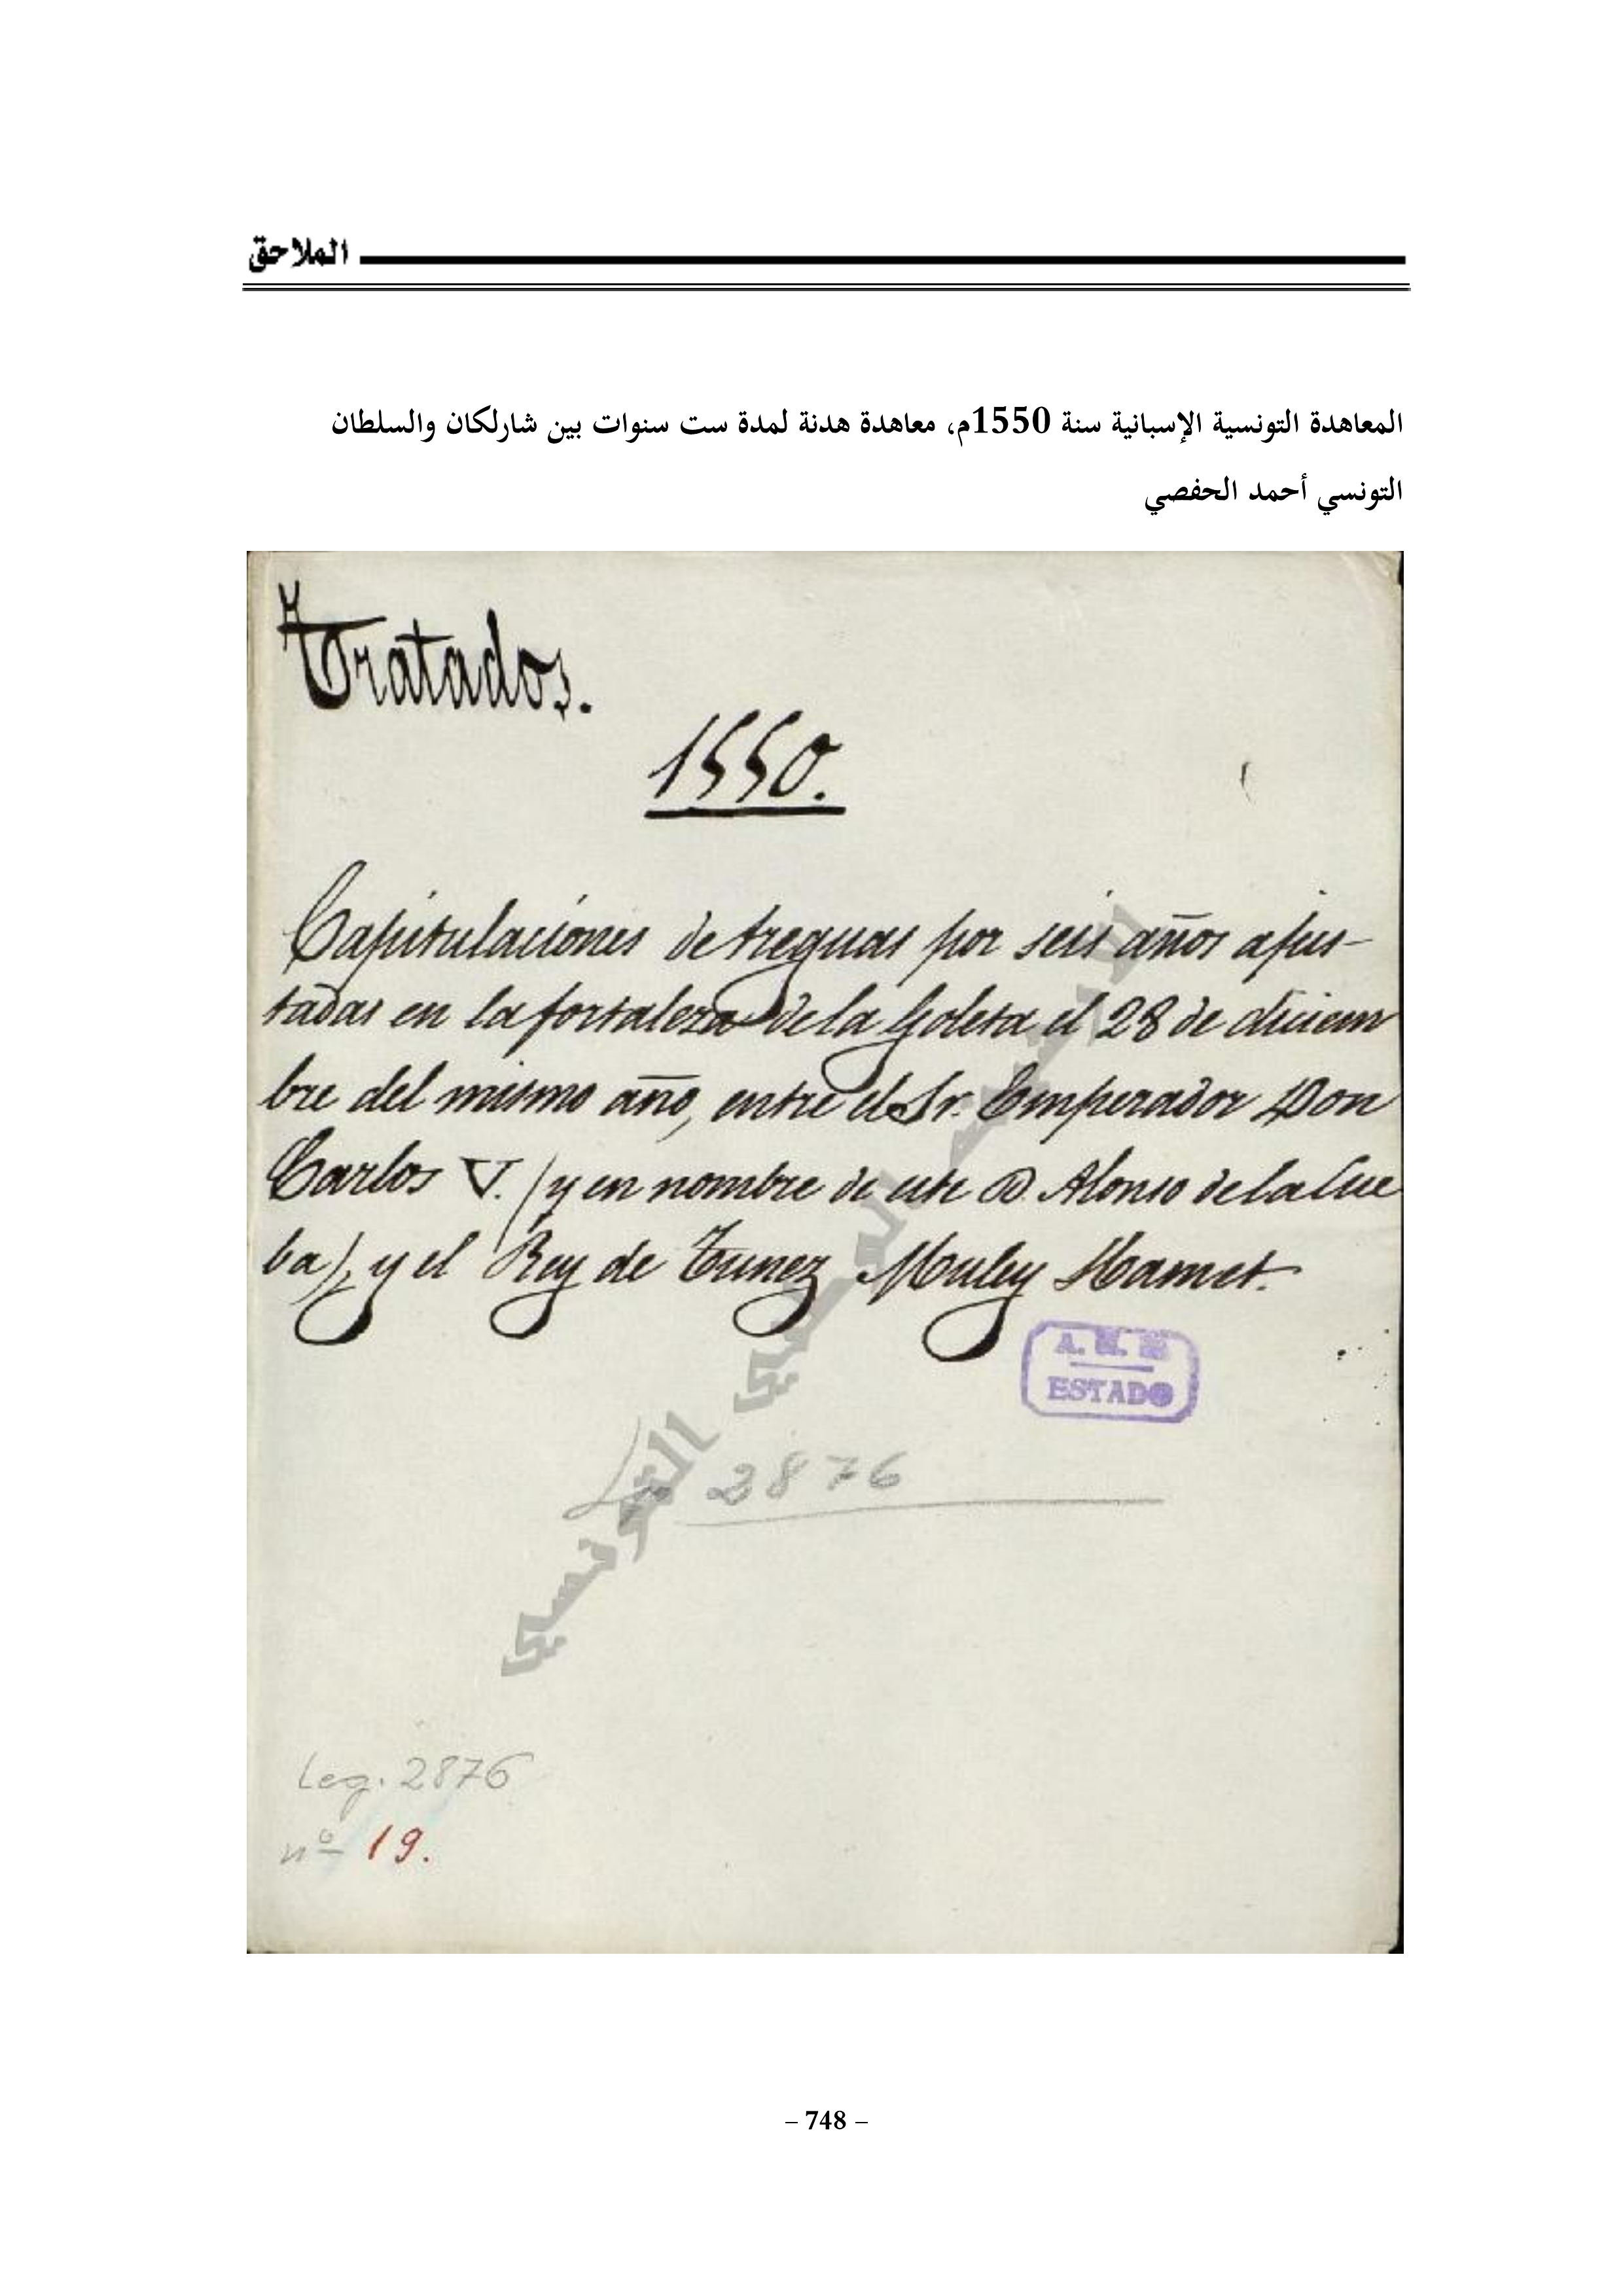 الملاحق
المعاهدة التونسية الإسبانية سنة 1550م، معاهدة هدنة لمدة ست سنوات بين شارلكان والسلطان
التونسي أحمد الحفصي
Tratados.
1550.
Capitulaciones de treguas por seis años ajus-
tadas en la fortaleza de la Goleta el 28 de diciem
bre del mismo año, entre el Sr. Emperador Don
Carlos V. (y en nombre de este D. Alonso de la Cue
ba), y el Rey de Tunez Muley Hamet.
A. H. N
ESTADO
2876
التونسي
Leg. 2876
nº 19.
– 748 –